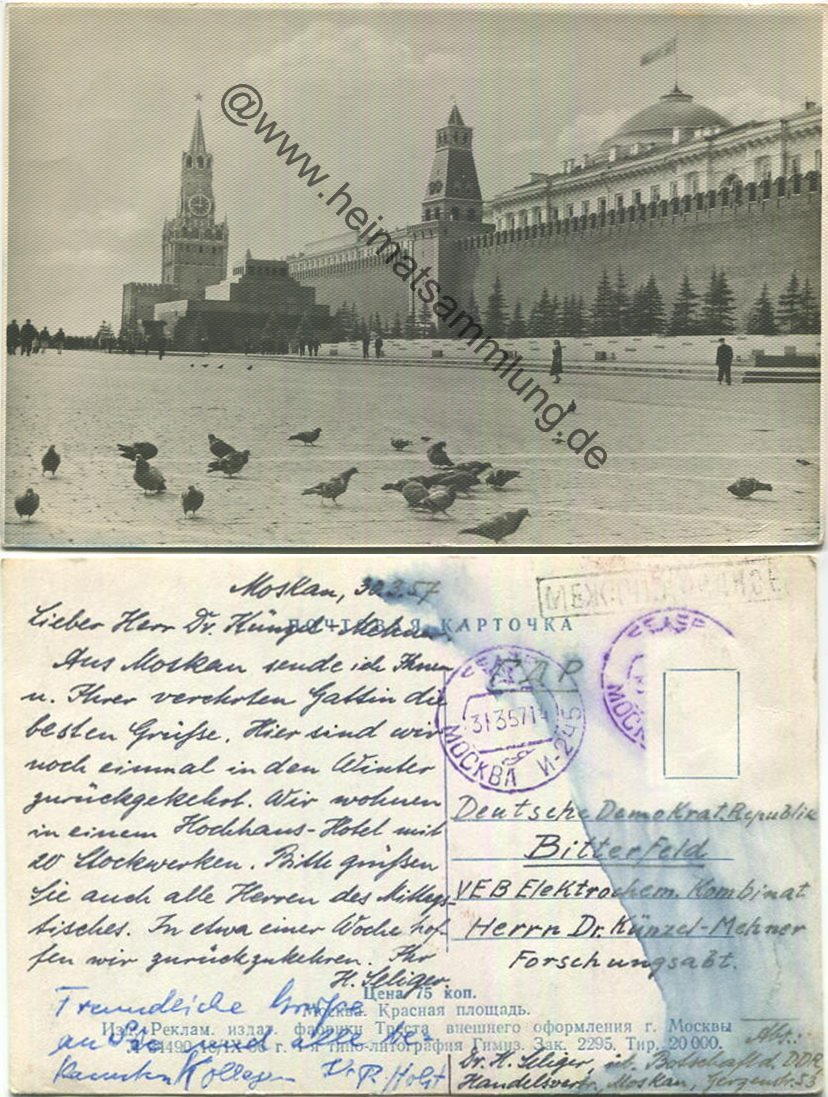 @www.heimatsammlung.de
Moskau, 30.3.57
ПОЧТОВАЯ КАРТОЧКА
МЕЖДУНАРОДНОЕ
Lieber Herr Dr. Künzel-Mehner
Aus Moskau sende ich Ihnen
u. Ihrer verehrten Gattin die
besten Grüße. Hier sind wir
noch einmal in den Winter
zurückgekehrt. Wir wohnen
in einem Hochhaus-Hotel mit
20 Stockwerken. Bitte grüßen
Sie auch alle Herren des Mittags-
tisches. In etwa einer Woche hof-
fen wir zurückzukehren. Ihr
H. Seliger.
Freundliche Grüße
an Sie und alle
bekannten Kollegen Ihr P. Holst
ГДР
3135714
МОСКВА И-245
МОСК
Deutsche Demokrat. Republik
Bitterfeld
VEB Elektrochem. Kombinat
Herrn Dr. Künzel-Mehner
Forschungsabt.
Цена 75 коп.
Москва. Красная площадь.
Изд. Реклам. издат. фабрики Треста внешнего оформления г. Москвы
Зак. 2295. Тир. 20 000.
Abs.:
Dr. H. Seliger, Botschaft d. DDR,
Handelsvertr., Moskau,